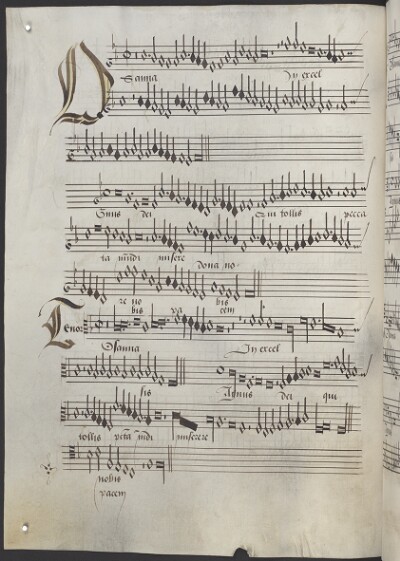 Osanna In excel
Gnus dei Qui tollis pecca
ta mundi misere
dona no
re no bis
bis pa cem
Tenor
Osanna In excel
sis Agnus dei qui
tollis pcta mdi miserere
nobis
pacem